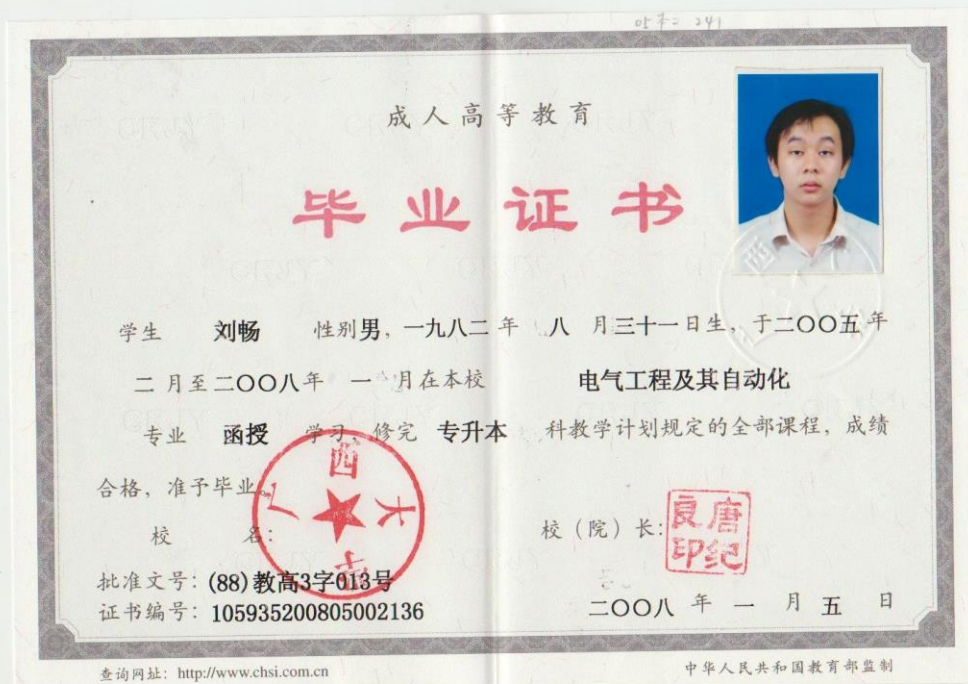 05本二 241
成人高等教育
毕业证书
学生 刘畅 性别男，一九八二年 八 月三十一日生，于二〇〇五年
二 月至二〇〇八年 一 月在本校 电气工程及其自动化
专业 函授 学习，修完 专升本 科教学计划规定的全部课程，成绩
合格，准予毕业。
校 名：
广西大学
校（院）长：
唐纪良印
批准文号：(88)教高3字013号
证书编号：105935200805002136
二〇〇八 年 一 月 五 日
查询网址：http://www.chsi.com.cn
中华人民共和国教育部监制